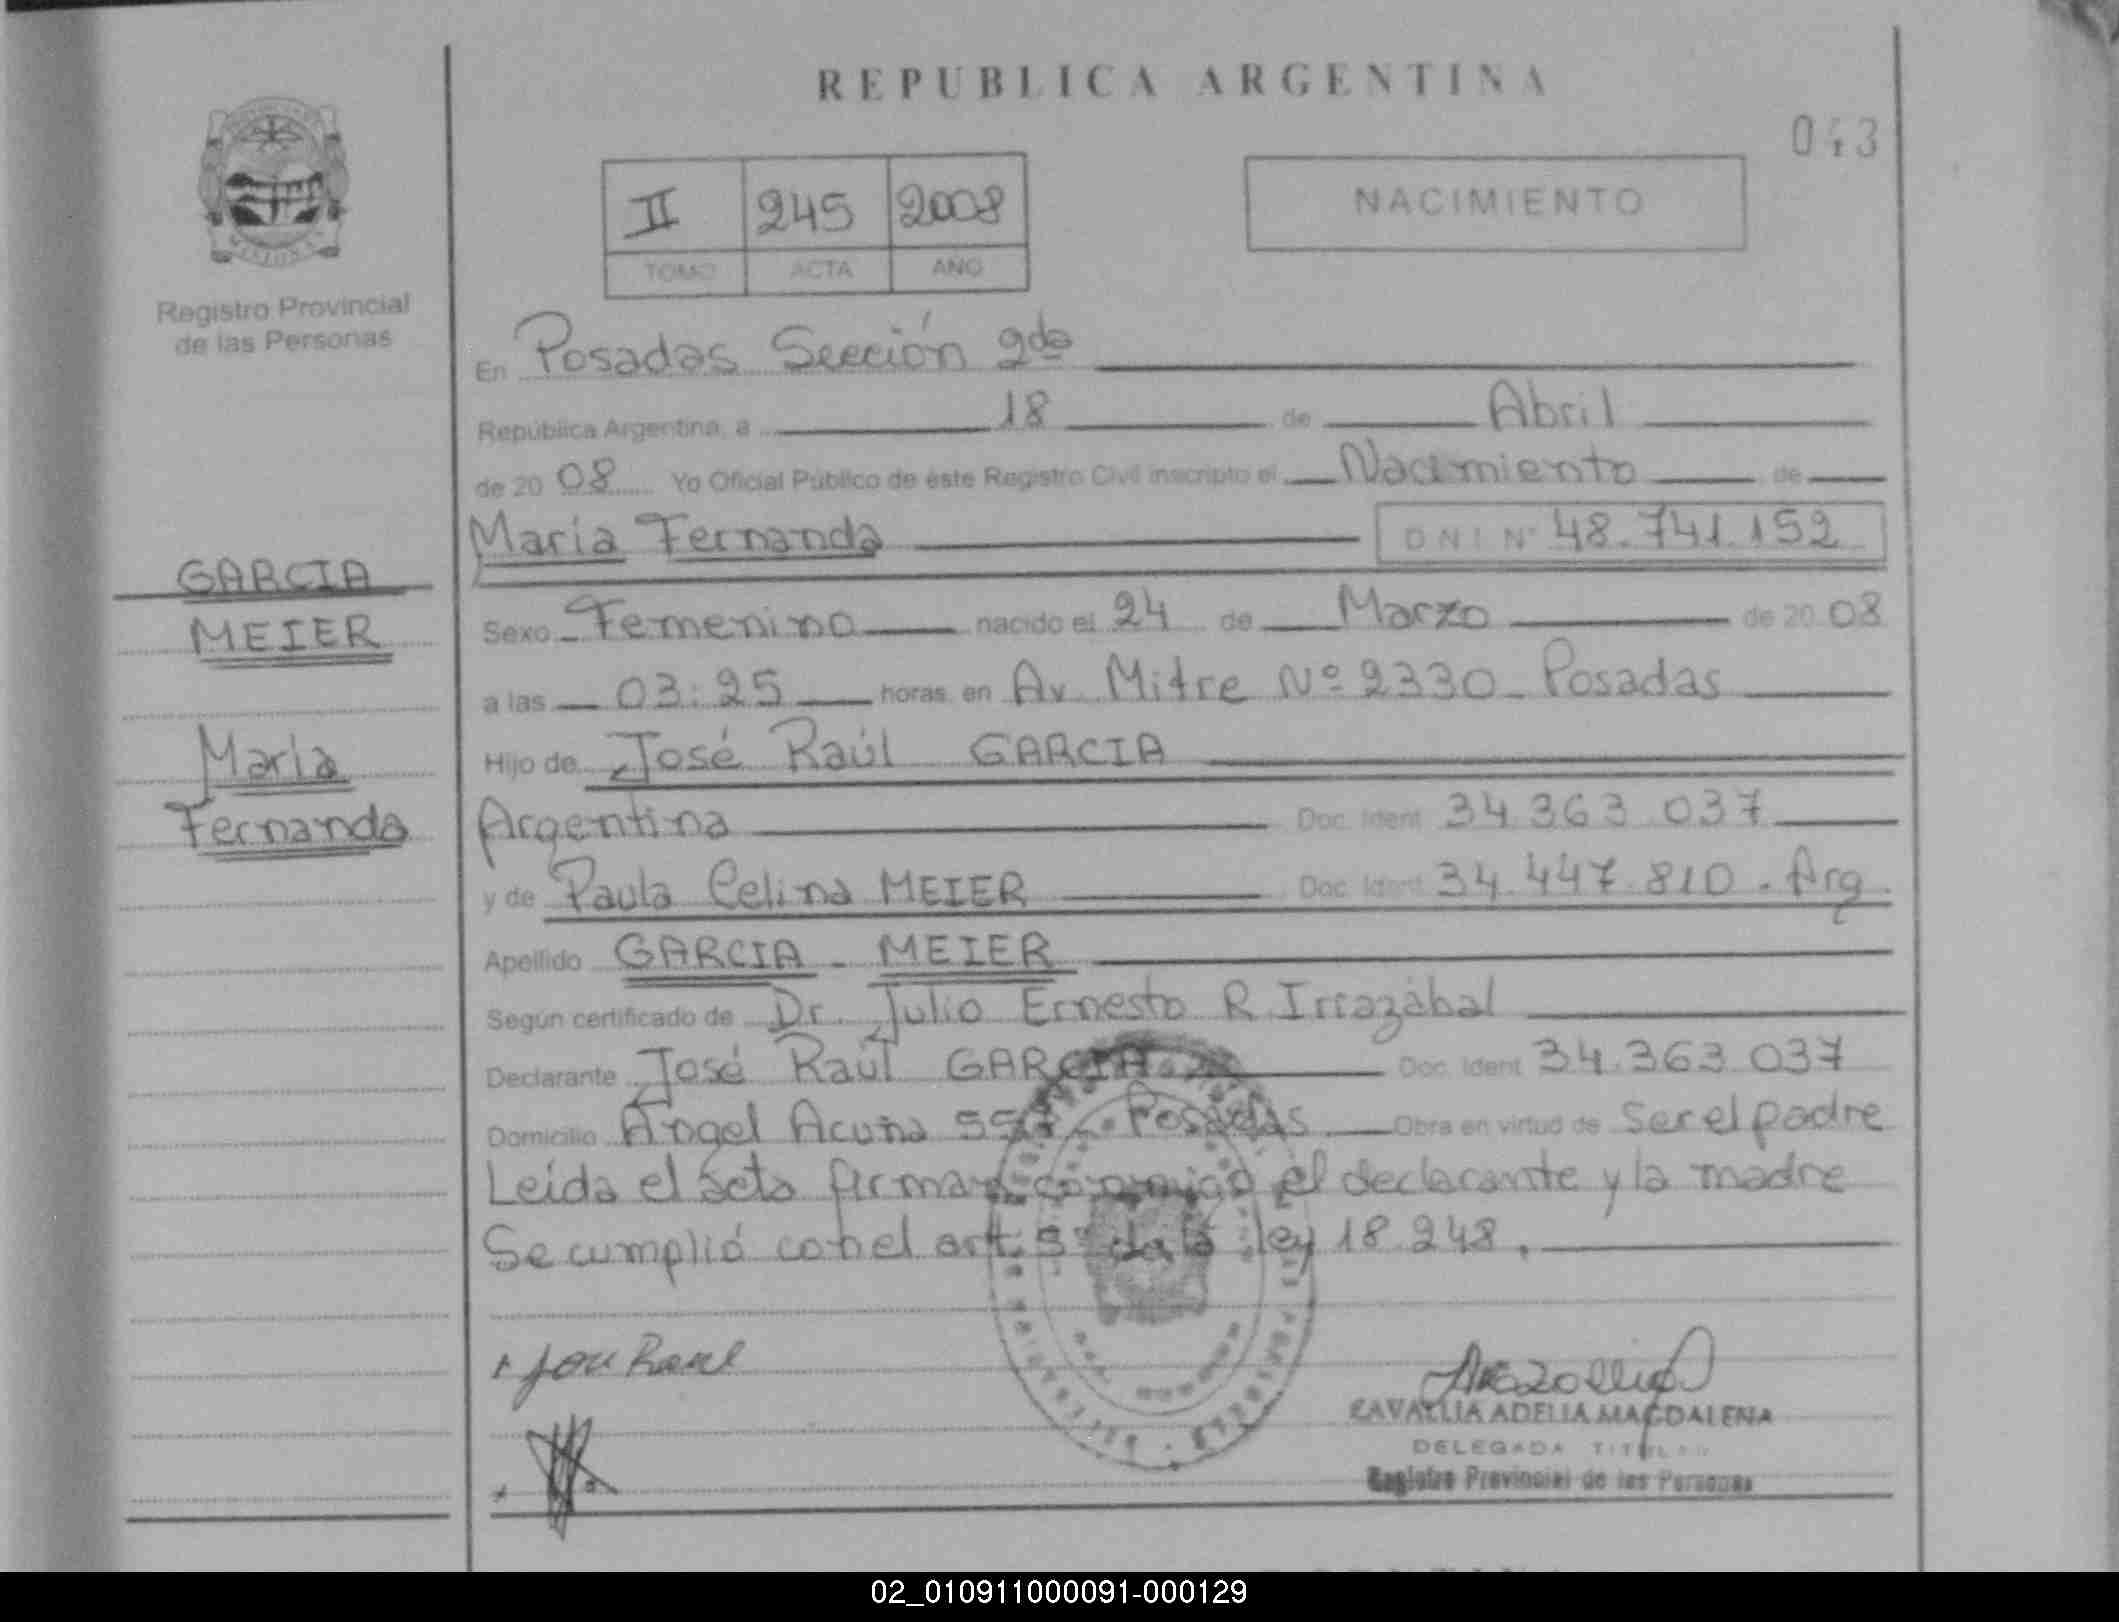 REPUBLICA ARGENTINA
043
II 245 2008
TOMO ACTA AÑO
NACIMIENTO
Registro Provincial
de las Personas
En Posadas Sección 2da
República Argentina, a 18 de Abril
de 20 08 Yo Oficial Público de éste Registro Civil inscripto el Nacimiento de
María Fernanda DNI Nº 48.741.152
GARCIA
MEIER
María
Fernanda
Sexo Femenino nacido el 24 de Marzo de 20 08
a las 03:25 horas en Av. Mitre Nº 2330 - Posadas
Hijo de José Raúl GARCIA
Argentina Doc. Ident 34.363.037
y de Paula Celina MEIER Doc. Ident 34.447.810. Arg.
Apellido GARCIA - MEIER
Según certificado de Dr. Julio Ernesto R. Irrazábal
Declarante José Raúl GARCIA Doc. Ident 34.363.037
Domicilio Angel Acuña Posadas Obra en virtud de Ser el padre
Leída el acta firman conmigo el declarante y la madre
Se cumplió con el art. de la ley 18.248.
José Raul
CAVALLIA ADELIA MAGDALENA
DELEGADA TITULAR
Registro Provincial de las Personas
02_010911000091-000129